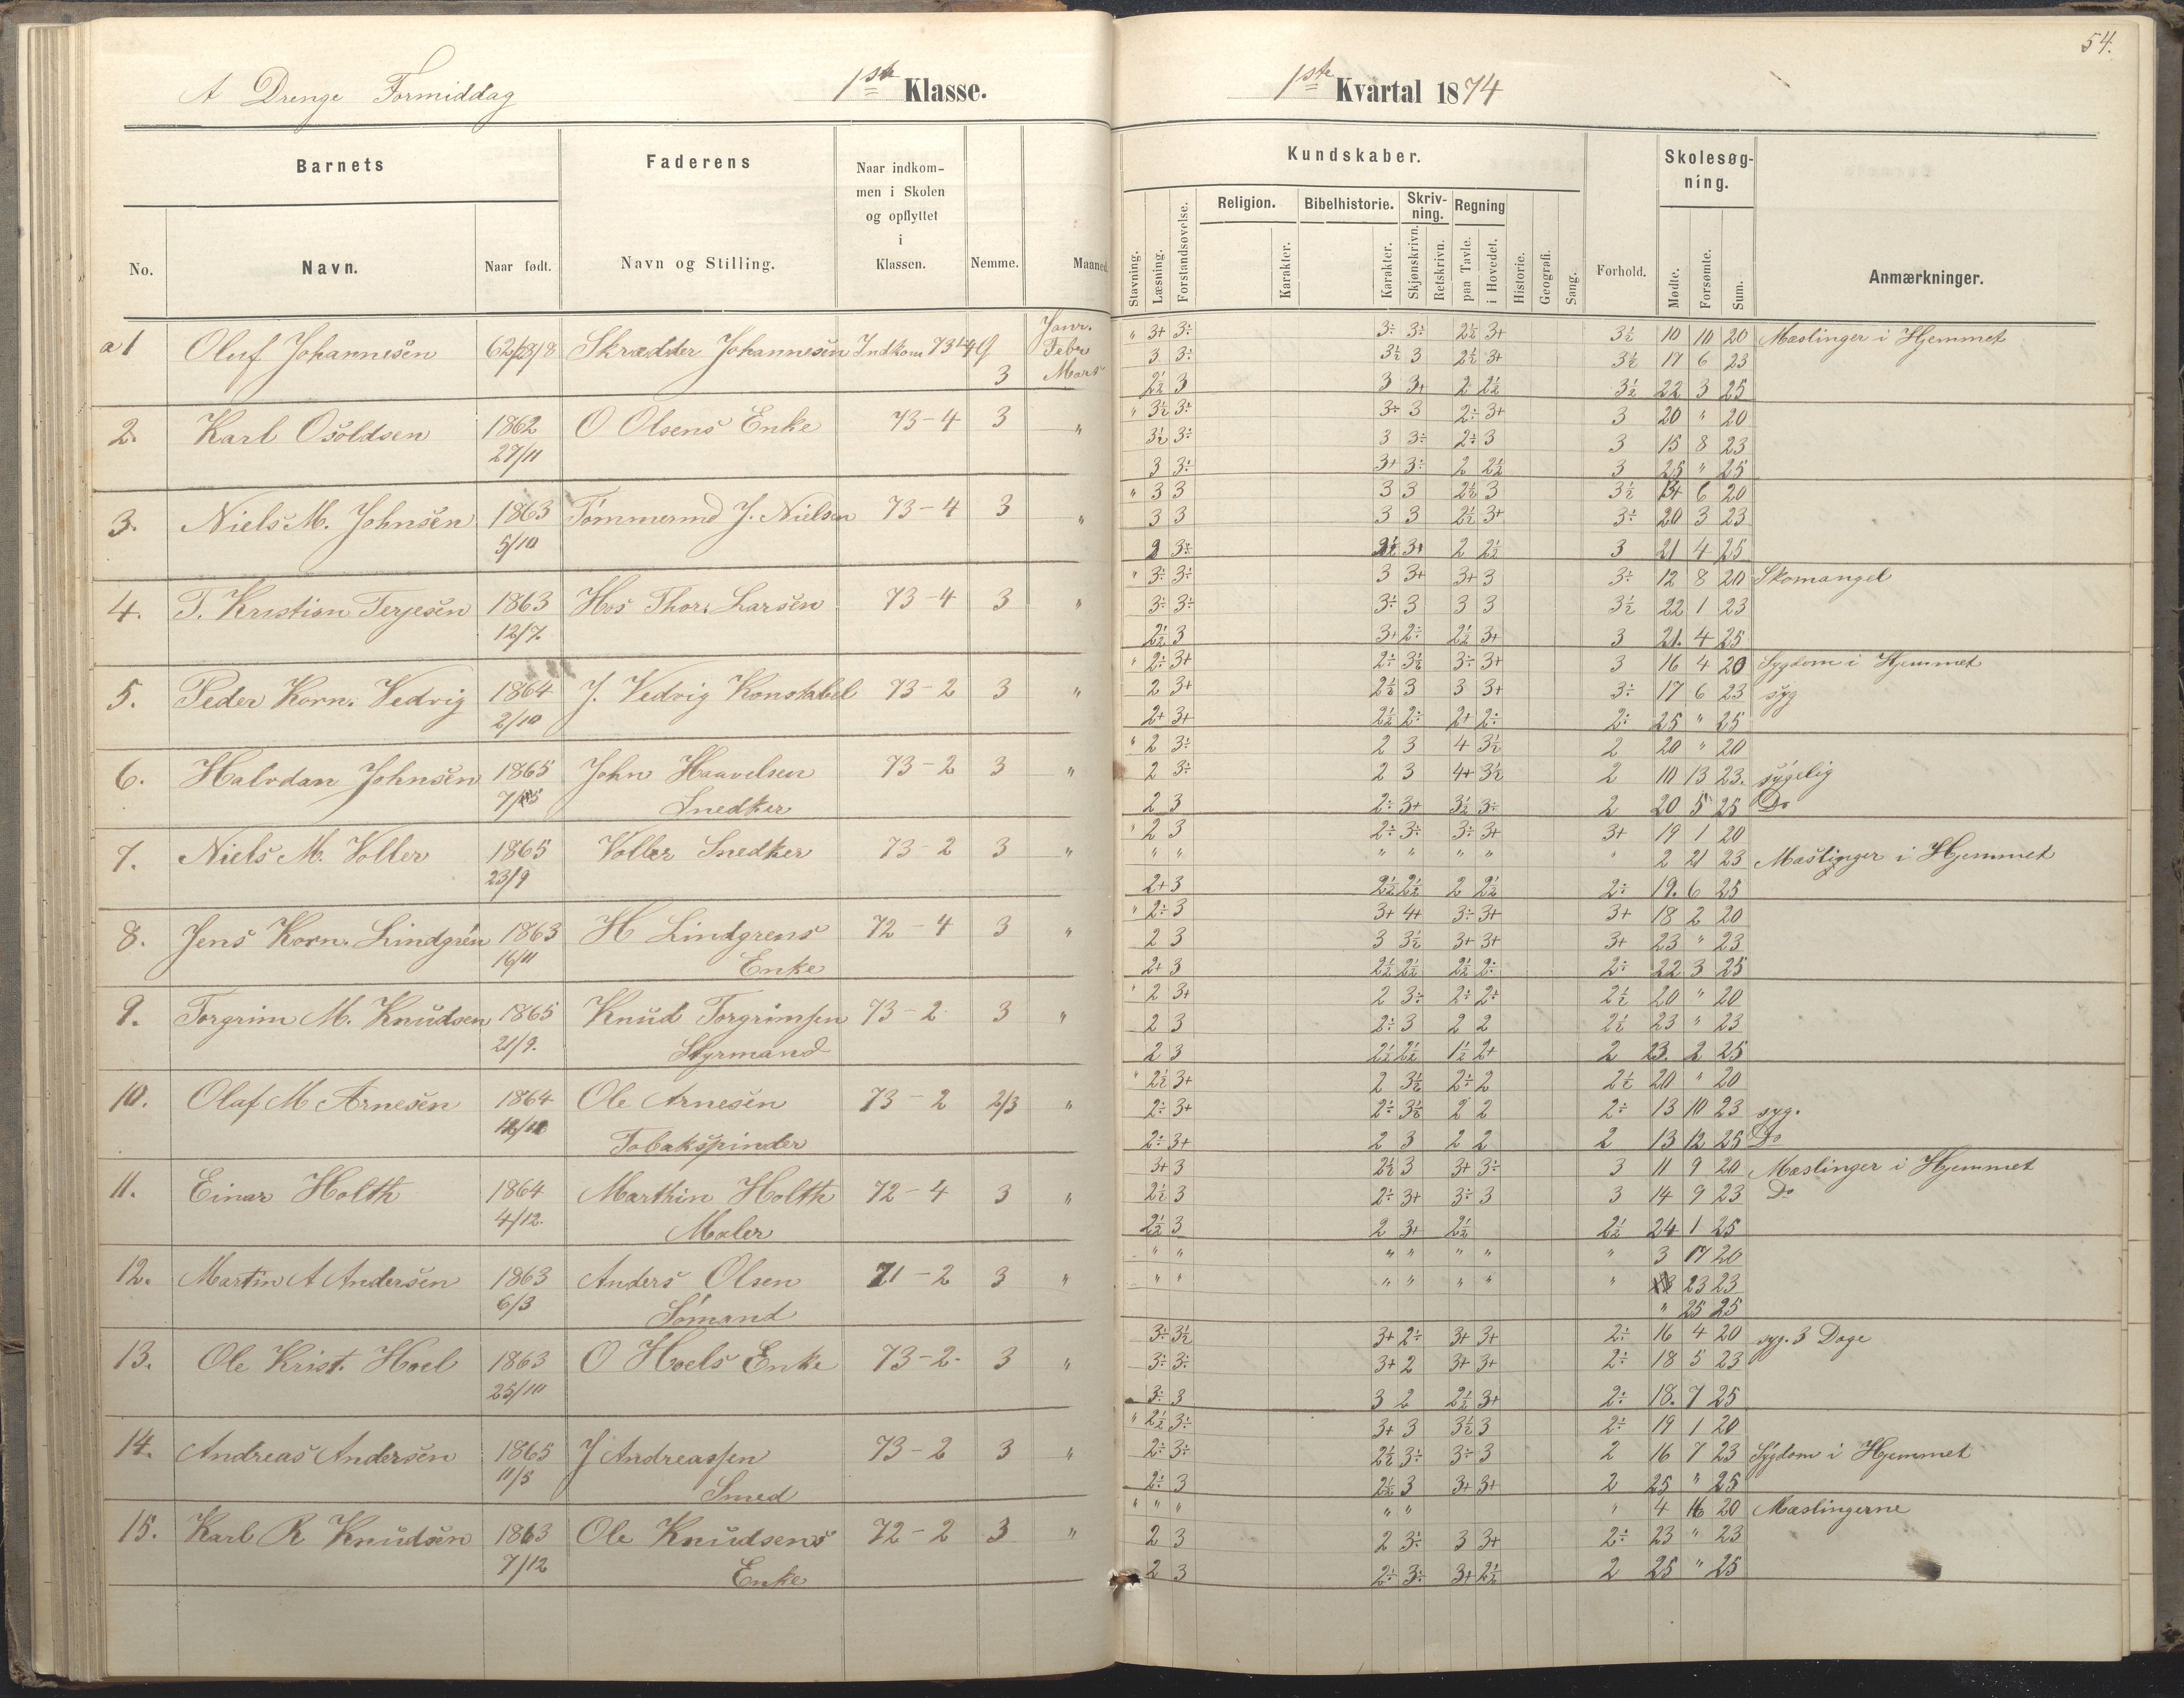 54.
A Drenge Formiddag 1ste Klasse. 1ste Kvartal 1874
Barnets Faderens Naar indkommen i Skolen og opflyttet i Klassen. Nemme. Maaned Kundskaber. Skolesøgning. Anmærkninger.
No. Navn. Naar født. Navn og Stilling.
Stavning. Læsning. Forstandsøvelse. Religion. Karakter. Bibelhistorie. Karakter. Skrivning. Skjønskrivn. Retskrivn. Regning paa Tavle. i Hovedet. Historie. Geografi. Sang. Forhold. Mødte. Forsømte. Sum.
a 1 Oluf Johannesen 62 28/8 Skrædder Johannesen Indkom 73-4 3 Janr. " 3+ 3÷ 3÷ 3÷ 2½ 3+ 3½ 10 10 20 Mæslinger i Hjemmet
Febr 3 3÷ 3½ 3 2½ 3+ 3½ 17 6 23
Mars 2½ 3 3 3+ 2 2½ 3½ 22 3 25
2. Karl Osoldsen 1862 27/11 O Olsens Enke 73-4 3 " " 3½ 3÷ 3÷ 3 2÷ 3+ 3 20 " 20
3½ 3÷ 3 3÷ 2÷ 3 3 15 8 23
3 3÷ 3+ 3÷ 2 2½ 3 25 " 25
3. Niels M. Johnsen 1863 5/10 Tømmermd J. Nielsen 73-4 3 " " 3 3 3 3 2½ 3 3½ 14 6 20
3 3 3 3 2½ 3+ 3÷ 20 3 23
3÷ 3+ 2 2½ 3 21 4 25
4. T. Kristian Terjesen 1863 12/7. Hos Thor. Larsen 73-4 3 " " 3÷ 3÷ 3 3+ 3+ 3 3÷ 12 8 20 Skomangel
3÷ 3÷ 3÷ 3 3 3 3½ 22 1 23
2½ 3 3+ 2÷ 2½ 3+ 3 21. 4 25
5. Peder Korn. Vedvig 1864 2/10 J. Vedvig Konstabel 73-2 3 " " 2÷ 3+ 2÷ 3½ 3÷ 3+ 3 16 4 20 Sygdom i Hjemmet
2 3+ 2½ 3 3 3+ 3÷ 17 6 23 syg
2+ 3+ 2½ 2÷ 2+ 2÷ 2÷ 25 " 25
6. Halvdan Johnsen 1865 John Haavelsen Snedker 73-2 3 " " 2 3÷ 2 3 4 3½ 2 20 " 20
2 3÷ 2 3 4+ 3½ 2 10 13 23. sygelig
2 3 2÷ 3+ 3½ 3÷ 2 20 5 25 Do
7. Niels M. Voller 1865 23/9 Voller Snedker 73-2 3 " " 2 3 2÷ 3÷ 3÷ 3+ 3+ 19 1 20
" " " " " " " 2 21 23 Mæslinger i Hjemmet
2+ 3 2½ 2½ 2 2½ 2÷ 19. 6 25
8. Jens Korn. Lindgren 1863 16/11 H Lindgrens Enke 72-4 3 " " 2÷ 3 3+ 4+ 3÷ 3+ 3+ 18 2 20
2 3 3 3½ 3+ 3+ 3+ 23 " 23
2+ 3 2½ 2½ 2½ 2÷ 2÷ 22 3 25
9. Torgrim M. Knudsen 1865 21/9. Knud Torgrimsen Styrmand 73-2 3 " " 2 3+ 2 3÷ 2÷ 2÷ 2½ 20 " 20
2 3 2÷ 3 2 2 2½ 23 " 23
2 3 2½ 2½ 1½ 2+ 2 23. 2 25
10. Olaf M Arnesen 1864 Ole Arnesen Tobakspinder 73-2 2/3 " " 2½ 3+ 2 3½ 2÷ 2 2½ 20 " 20
2÷ 3+ 2÷ 3½ 2 2 2÷ 13 10 23 syg.
2÷ 3+ 2 3 2 2 2 13 12 25 Do
11. Einar Holth 1864 4/12. Marthin Holth Maler 72-4 3 " 3+ 3 2½ 3 3+ 3÷ 3 11 9 20 Mæslinger i Hjemmet
2½ 3 2÷ 3+ 3÷ 3 3 14 9 23 Do
2½ 3 2 3+ 2½ 2½ 24 1 25
12. Martin A Andersen 1863 6/3 Anders Olsen Sømand 71-2 3 " " " " " " " " 3 17 20
" " " " " " " 23 23
" 25 25
13. Ole Krist. Hoel 1863 25/10 O Hoels Enke 73-2. 3 " 3÷ 3½ 3+ 2÷ 3+ 3+ 2÷ 16 4 20 syg. 3 Dage
3÷ 3÷ 3+ 2 3+ 3+ 2÷ 18 5 23
3÷ 3 3 2 2½ 3+ 2÷ 18. 7 25
14. Andreas Andersen 1865 11/5 J Andreassen Smed 73-2 3 " " 2½ 3÷ 3+ 3 3½ 3 2÷ 19 1 20
2÷ 3÷ 2½ 3÷ 3÷ 3 2 16 7 23 Sygdom i Hjemmet
2÷ 3 2½ 3 3+ 3+ 2 25 " 25
15. Karl R Knudsen 1863 7/12 Ole Knudsens Enke 72-2 3 " " " " " " " 4 16 20 Mæslingerne
2 3 2 3÷ 3 3+ 2÷ 23 " 23
2 3 2÷ 3÷ 3+ 2½ 2 25 " 25